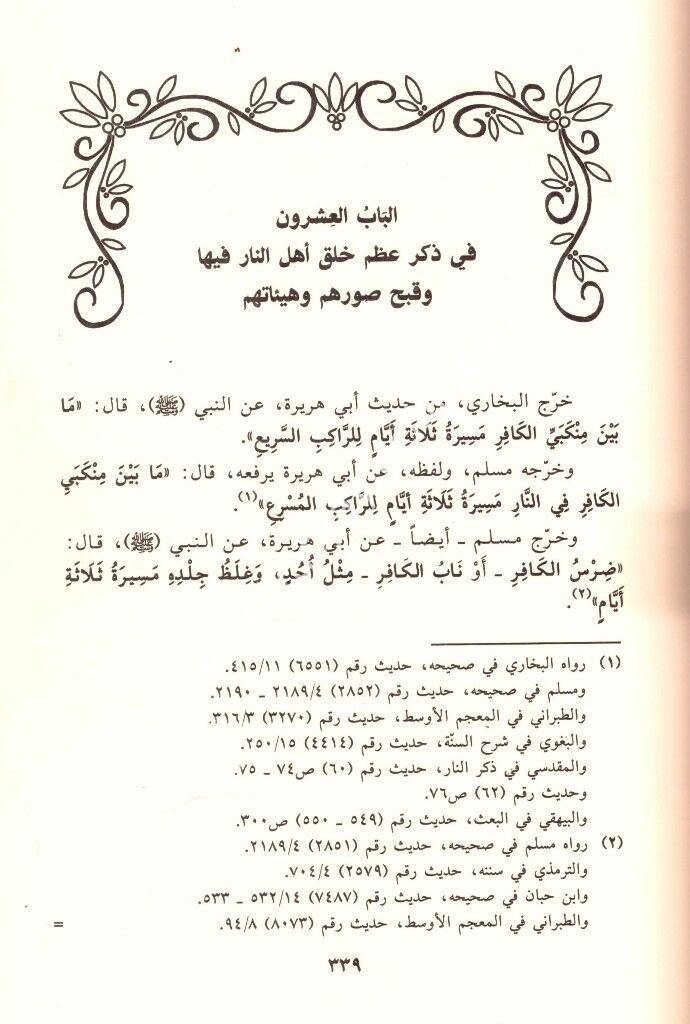 البَابُ العِشرون
في ذكر عظم خلق أهل النار فيها
وقبح صورهم وهيئاتهم
خرّج البخاري، من حديث أبي هريرة، عن النبي (ﷺ)، قال: «مَا
بَيْنَ مِنْكَبَيِّ الكَافِرِ مَسِيرَةُ ثَلَاثَةِ أَيَّامٍ لِلرَّاكِبِ السَّرِيعِ».
وخرّجه مسلم، ولفظه، عن أبي هريرة يرفعه، قال: «مَا بَيْنَ مِنْكَبَيِ
الكَافِرِ فِي النَّارِ مَسِيرَةُ ثَلَاثَةِ أَيَّامٍ لِلرَّاكِبِ المُسْرِعِ»(١).
وخرّج مسلم ـ أيضاً ـ عن أبي هريرة، عن النبي (ﷺ)، قال:
«ضِرْسُ الكَافِرِ ـ أَوْ نَابُ الكَافِرِ ـ مِثْلُ أُحُدٍ، وَغِلَظُ جِلْدِهِ مَسِيرَةُ ثَلَاثَةِ
أَيَّامٍ»(٢).
(١) رواه البخاري في صحيحه، حديث رقم (٦٥٥١) ٤١٥/١١.
ومسلم في صحيحه، حديث رقم (٢٨٥٢) ٢١٨٩/٤ ـ ٢١٩٠.
والطبراني في المعجم الأوسط، حديث رقم (٣٢٧٠) ٣١٦/٣.
والبغوي في شرح السنّة، حديث رقم (٤٤١٤) ٢٥٠/١٥.
والمقدسي في ذكر النار، حديث رقم (٦٠) ص٧٤ ـ ٧٥.
وحديث رقم (٦٢) ص٧٦.
والبيهقي في البعث، حديث رقم (٥٤٩ ـ ٥٥٠) ص٣٠٠.
(٢) رواه مسلم في صحيحه، حديث رقم (٢٨٥١) ٢١٨٩/٤.
والترمذي في سننه، حديث رقم (٢٥٧٩) ٧٠٤/٤.
وابن حبان في صحيحه، حديث رقم (٧٤٨٧) ٥٣٢/١٤ ـ ٥٣٣.
والطبراني في المعجم الأوسط، حديث رقم (٨٠٧٣) ٩٤/٨. =
٣٣٩